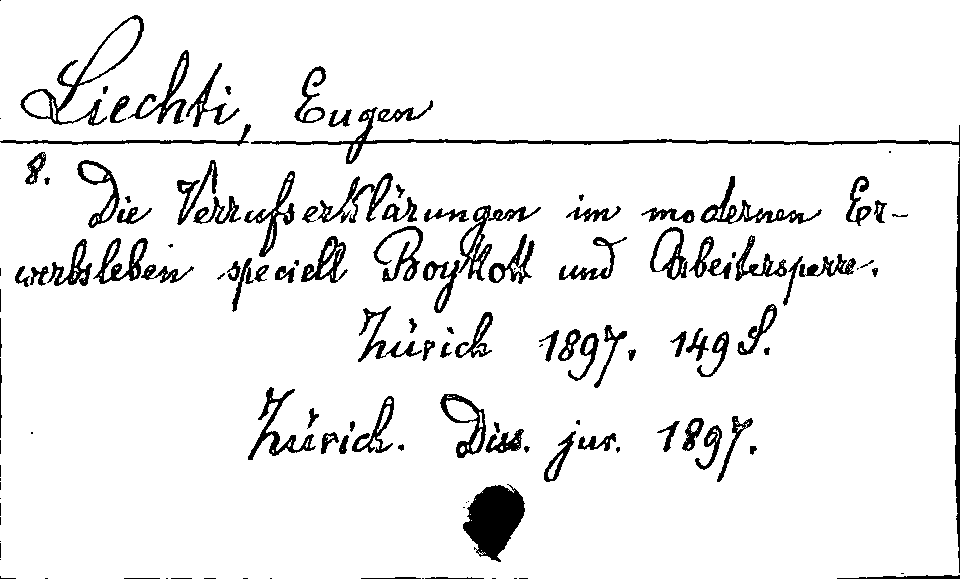 Liechti, Eugen
8.
Die Verrufserklärungen im modernen Er-
werbsleben speciell Boykott und Arbeitersperre.
Zürich 1897. 149 S.
Zürich. Diss. jur. 1897.